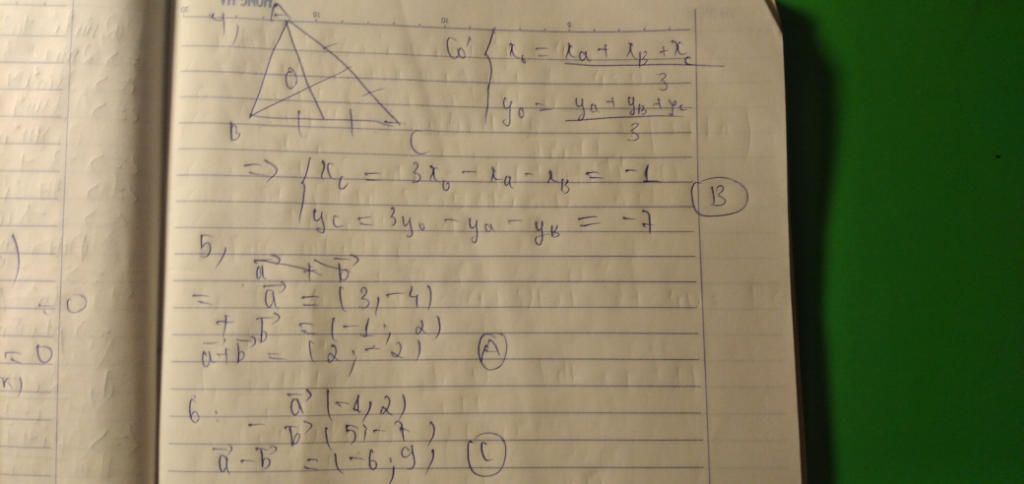 4,
O
B
C
Có { x₀ = (x_A + x_B + x_C) / 3
y₀ = (y_A + y_B + y_C) / 3
=> { x_C = 3x₀ - x_A - x_B = -1
y_C = 3y₀ - y_A - y_B = -7
B
5,
= a⃗ = (3, -4)
+ b⃗ = (-1; 2)
a⃗+b⃗ = (2; -2) A
6. a⃗ (-1, 2)
- b⃗ (5; -7)
a⃗ - b⃗ = (-6; 9) C
= 0